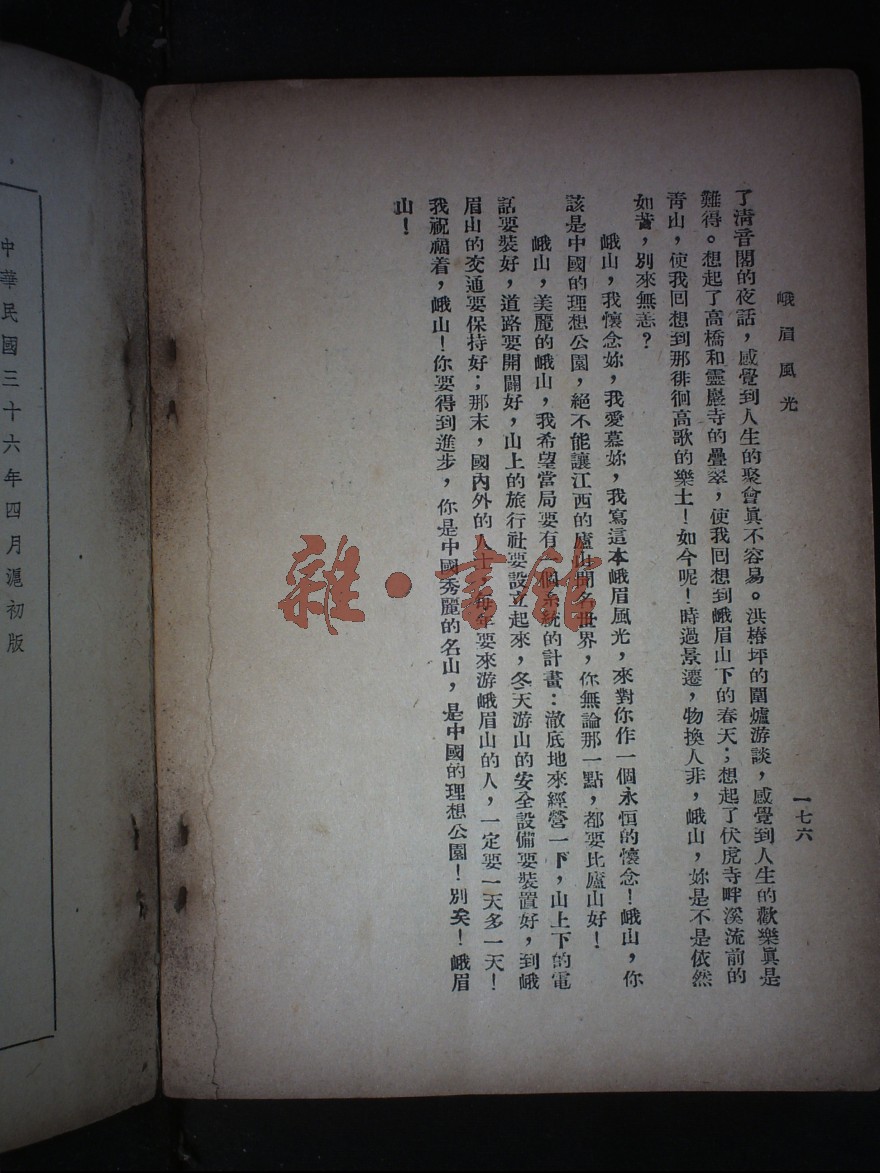 峨眉風光
一七六
了淸音閣的夜話，感覺到人生的聚會眞不容易。洪椿坪的圍爐游談，感覺到人生的歡樂眞是
難得。想起了高橋和靈巖寺的疊翠，使我回想到峨眉山下的春天；想起了伏虎寺畔溪流前的
靑山，使我回想到那徘徊高歌的樂土！如今呢！時過景遷，物換人非，峨山，妳是不是依然
如昔，別來無恙？
峨山，我懷念妳，我愛慕妳，我寫這本峨眉風光，來對你作一個永恒的懷念！峨山，你
該是中國的理想公園，絕不能讓江西的廬山聞名世界，你無論那一點，都要比廬山好！
峨山，美麗的峨山，我希望當局要有一個系統的計畫：澈底地來經營一下，山上下的電
話要裝好，道路要開闢好，山上的旅行社要設立起來，冬天游山的安全設備要裝置好，到峨
眉山的交通要保持好；那末，國內外的人士，每年要來游峨眉山的人，一定要一天多一天！
我祝福着，峨山！你要得到進步，你是中國秀麗的名山，是中國的理想公園！別矣！峨眉
山！
中華民國三十六年四月滬初版
雜·書館